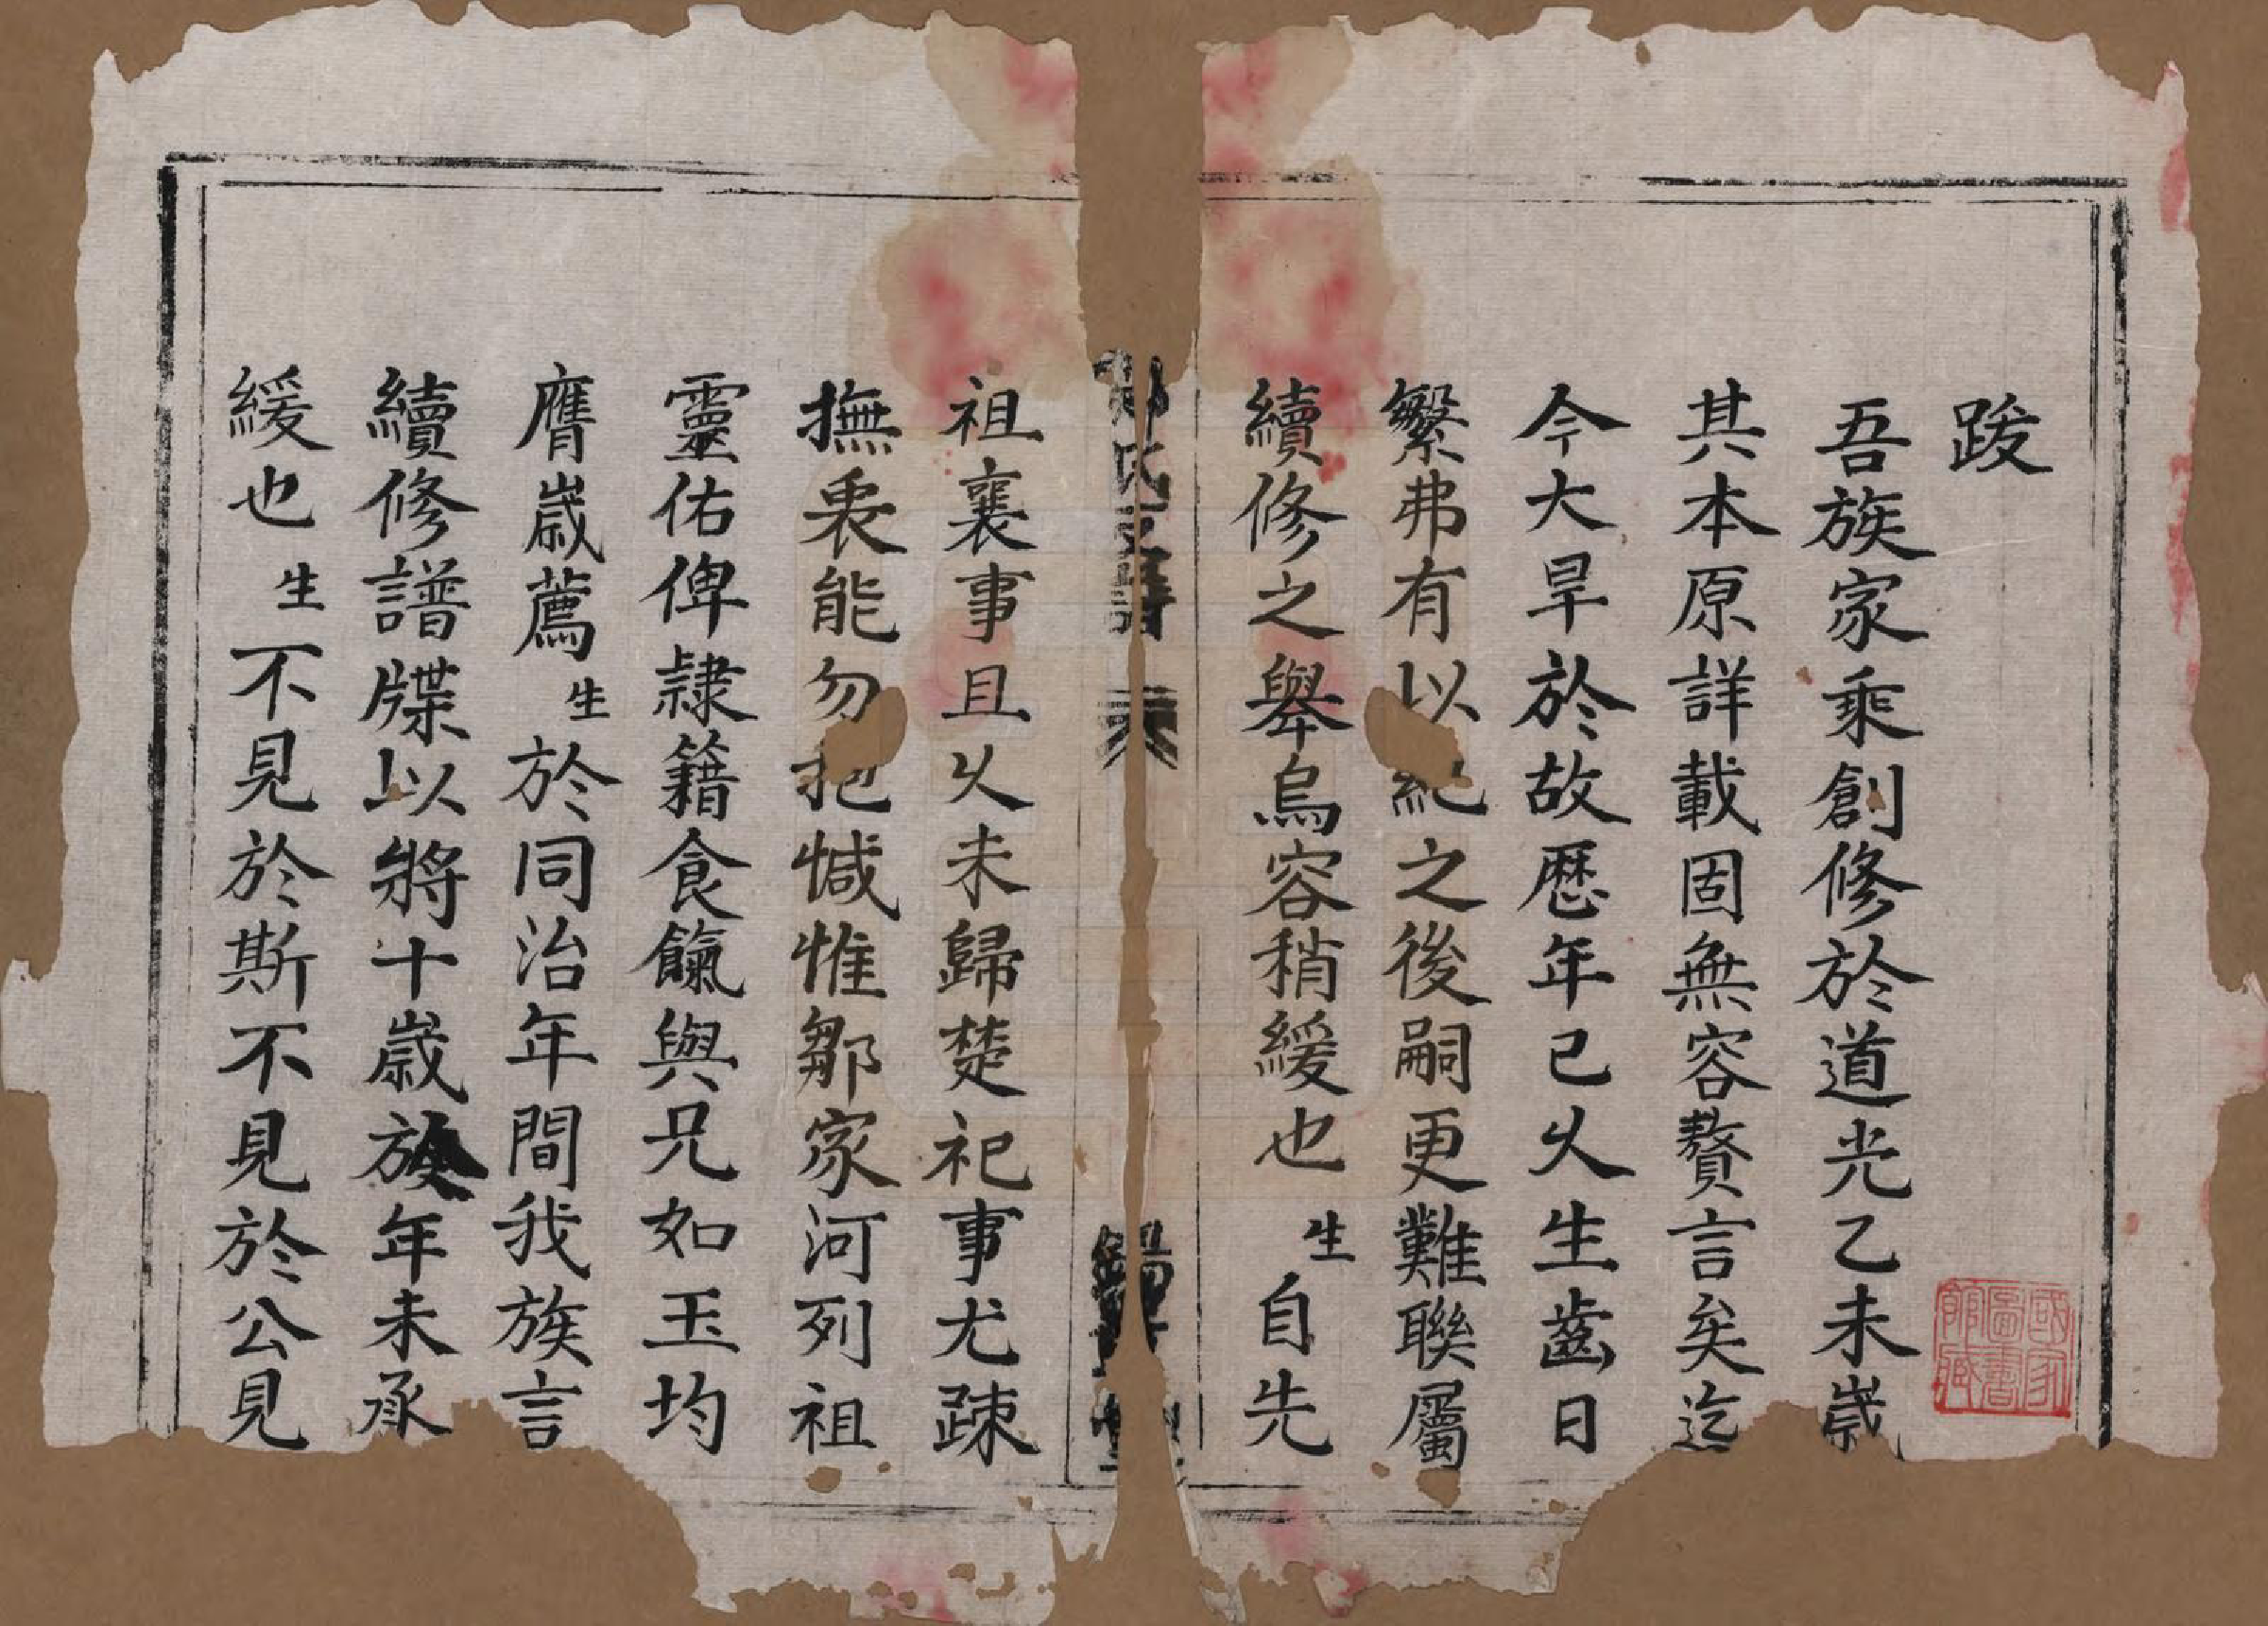 跋
吾族家乘創修於道光乙未歲
其本原詳載固無容贅言矣迄
今大旱於故歷年已久生齒日
繁弗有以紀之後嗣更難聯屬
續修之舉烏容稍緩也生自先
氏譜
祖襄事且久未歸楚祀事尤疎
撫衷能勿抱憾惟鄒家河列祖
靈佑俾隷籍食餼與兄如玉均
膺歲薦生於同治年間我族言
續修譜牒以將十歲族年未承
緩也生不見於斯不見於公見
國家圖書館藏